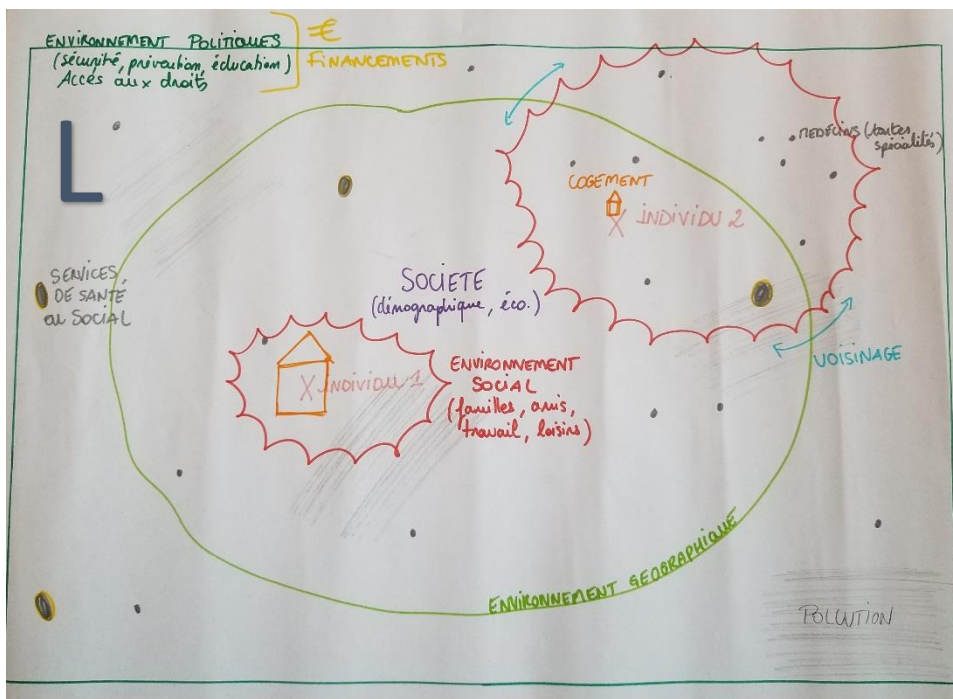 ENVIRONNEMENT POLITIQUES
(sécurité, prévention, éducation)
Accès aux droits
=€
FINANCEMENTS
L
MEDECINS (toutes
spécialités)
LOGEMENT
X INDIVIDU 2
SERVICES
DE SANTÉ
ou SOCIAL
SOCIETE
(démographique, éco.)
VOISINAGE
X INDIVIDU 1
ENVIRONNEMENT
SOCIAL
(familles, amis,
travail, loisirs)
ENVIRONNEMENT GEOGRAPHIQUE
POLLUTION